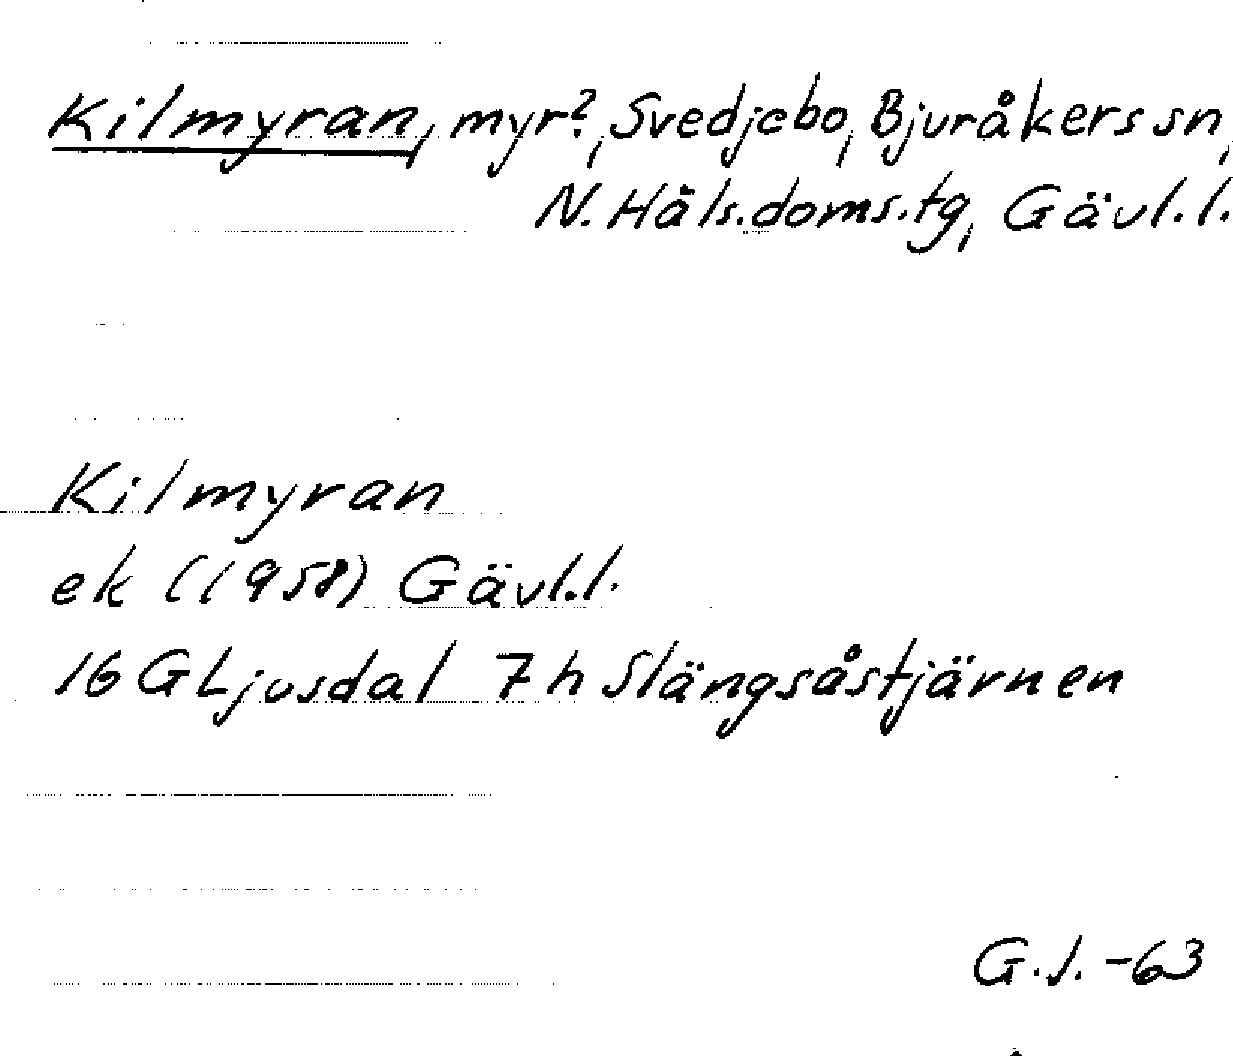 Kilmyran, myr?, Svedjebo, Bjuråkers sn,
N. Häls. doms. tg, Gävl. l.
Kilmyran
ek (1958) Gävl. l.
16 G Ljusdal 7 h Slängsåstjärnen
G. J. -63